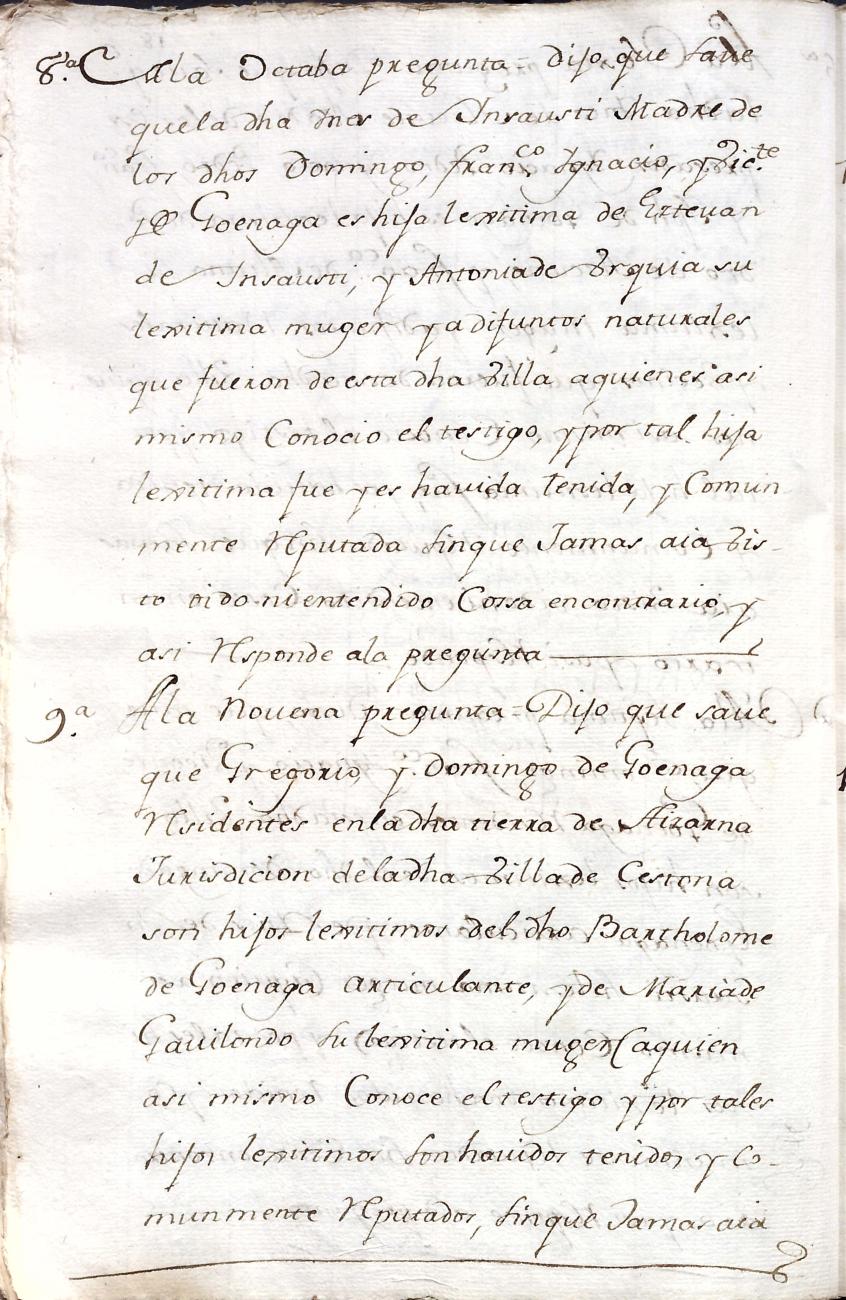 8.ª A la Octaba pregunta = Dijo que save
que la dha Ines de Insausti Madre de
los dhos Domingo, fran.co Ignacio, y Vic.te
de Goenaga es hija lexitima de Estevan
de Insausti, y Antonia de Vrquia su
lexitima muger ya difuntos naturales
que fueron de esta dha Villa aquienes asi
mismo Conocio el testigo, y por tal hija
lexitima fue y es havida tenida, y Comun
mente Reputada sin que Jamas aia Vis-
to oido ni entendido Cossa encontrario, y
asi Responde ala pregunta
9.ª A la Novena pregunta = Dijo que save
que Gregorio, y Domingo de Goenaga
Residentes en la dha tierra de Aizarna
Jurisdicion de la dha Villa de Cestona
son hijos lexitimos del dho Bartholome
de Goenaga articulante, y de Maria de
Gavilondo su lexitima muger (aquien
asi mismo Conoce el testigo y por tales
hijos lexitimos son havidos tenidos y Co-
munmente Reputados, sin que Jamas aia